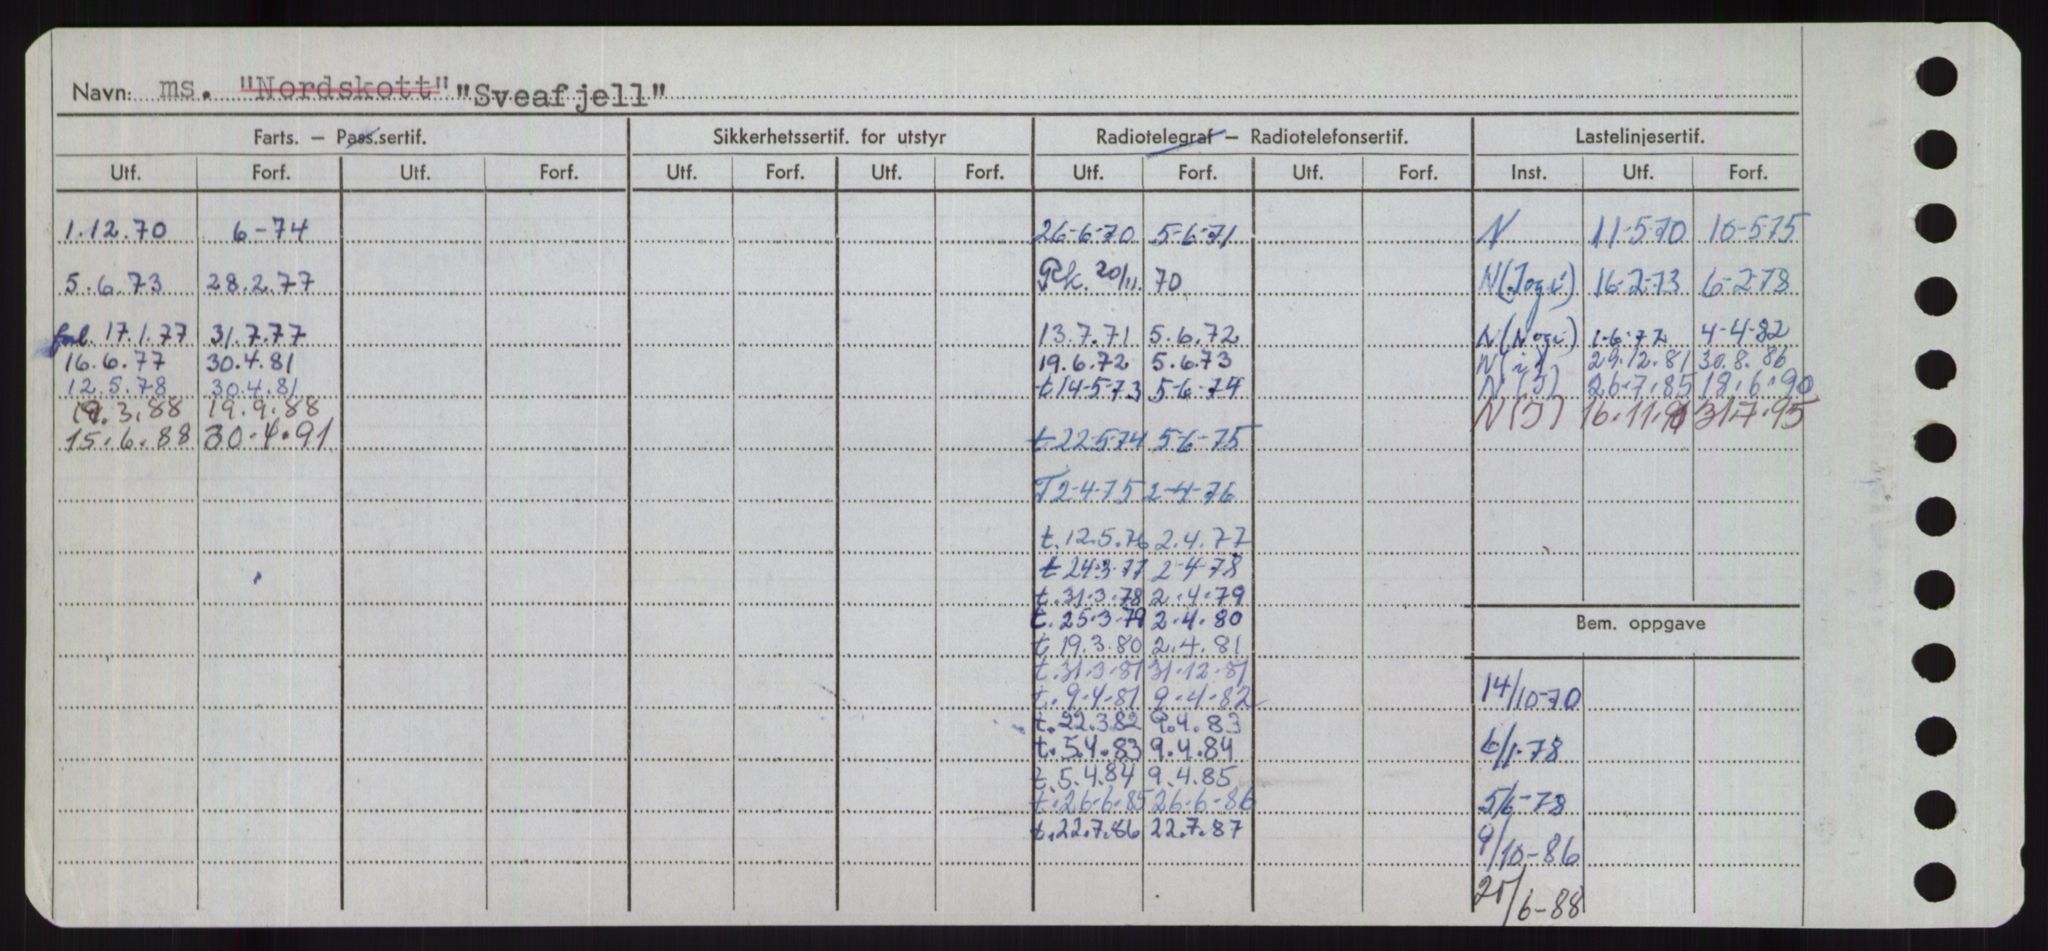 Navn: ms. "Nordskott" "Sveafjell"
Farts. — Pass.sertif. Sikkerhetssertif. for utstyr Radiotelegraf — Radiotelefonsertif. Lastelinjesertif.
Utf. Forf. Utf. Forf. Utf. Forf. Utf. Forf. Utf. Forf. Utf. Forf. Inst. Utf. Forf.
1.12.70 6-74 26-6-70 5-6-71 N 11-5-70 10-5-75
5.6.73 28.2.77 Rk. 20/11. 70 16-2-73 6-2-78
17.1.77 31.7.77 13.7.71 5.6.72 1-6-77 4-4-82
16.6.77 30.4.81 19.6.72 5.6.73 29.12.81 30.8.86
12.5.78 30.4.81 t 14-5-73 5-6-74 N(I) 26-7-85 18.6.90
19.3.88 19.9.88 N(I) 16.11.90 31.7.95
15.6.88 30.4.91 t. 22-5-74 5-6-75
T 2-4-75 2-4-76
t. 12.5.76 2.4.77
t 24-3-77 2-4-78
t. 31.3.78 2.4.79
t. 25.3.79 2.4.80
Bem. oppgave
t 19.3.80 2.4.81
t. 31.3.81 31.12.81
t. 9.4.81 9.4.82
14/10-70
t. 22.3.82 9.4.83
t. 5.4.83 9.4.84
6/1-78
t. 5.4.84 9.4.85
t. 26-6-85 26-6-86
5/6-78
t. 22.7.86 22.7.87
9/10-86
25/6-88